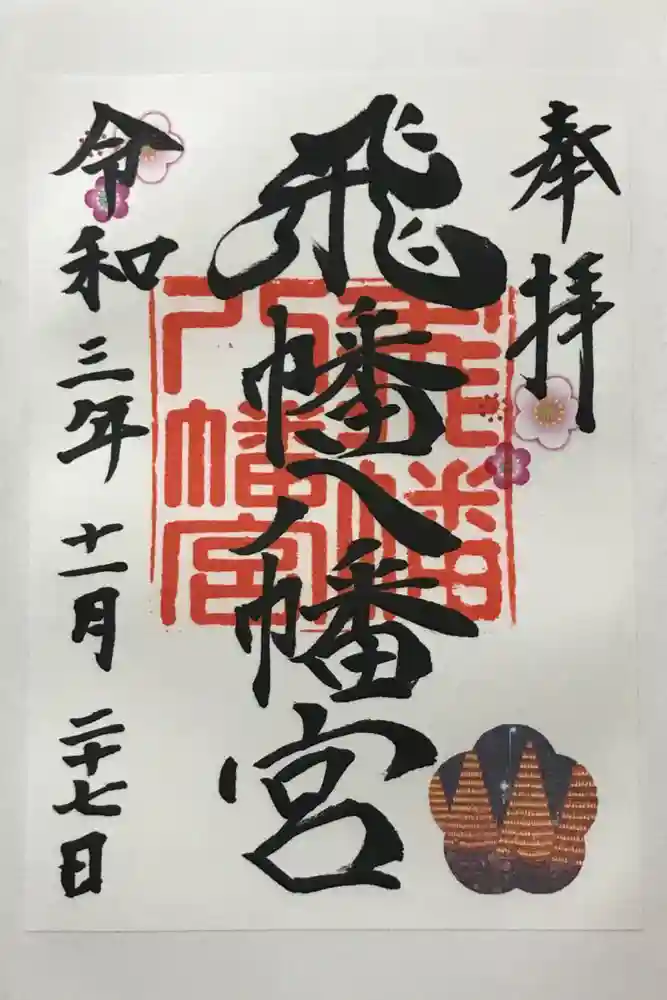 奉拝
飛幡八幡宮
飛幡八幡宮
令和三年十一月二十七日